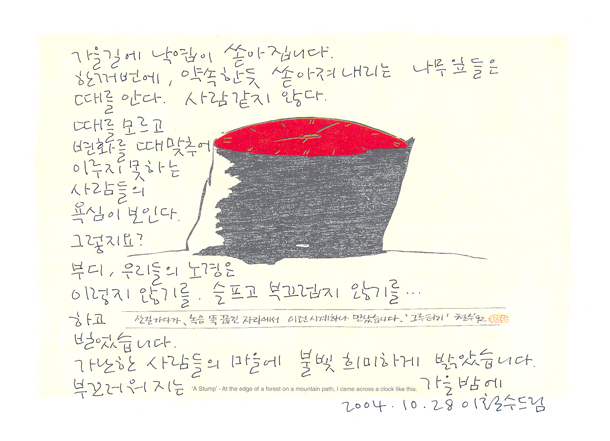 가을길에 낙엽이 쏟아집니다.
한꺼번에, 약속한듯 쏟아져 내리는 나무잎들은
때를 안다. 사람같지 않다.
때를 모르고
변화를 때맞추어
이루지 못하는
사람들의
욕심이 보인다.
그렇지요?
부디, 우리들의 노경은
이렇지 않기를. 슬프고 부끄럽지 않기를…
산길가다가, 숲 끝자리에서 이런 시계하나 만났습니다. '그루터기'
하고
빌었습니다.
가난한 사람들의 마을에 불빛 희미하게 밝았습니다.
부끄러워지는
'A Stump' - At the edge of a forest on a mountain path, I came across a clock like this.
가을밤에
2004.10.28 이철수드림